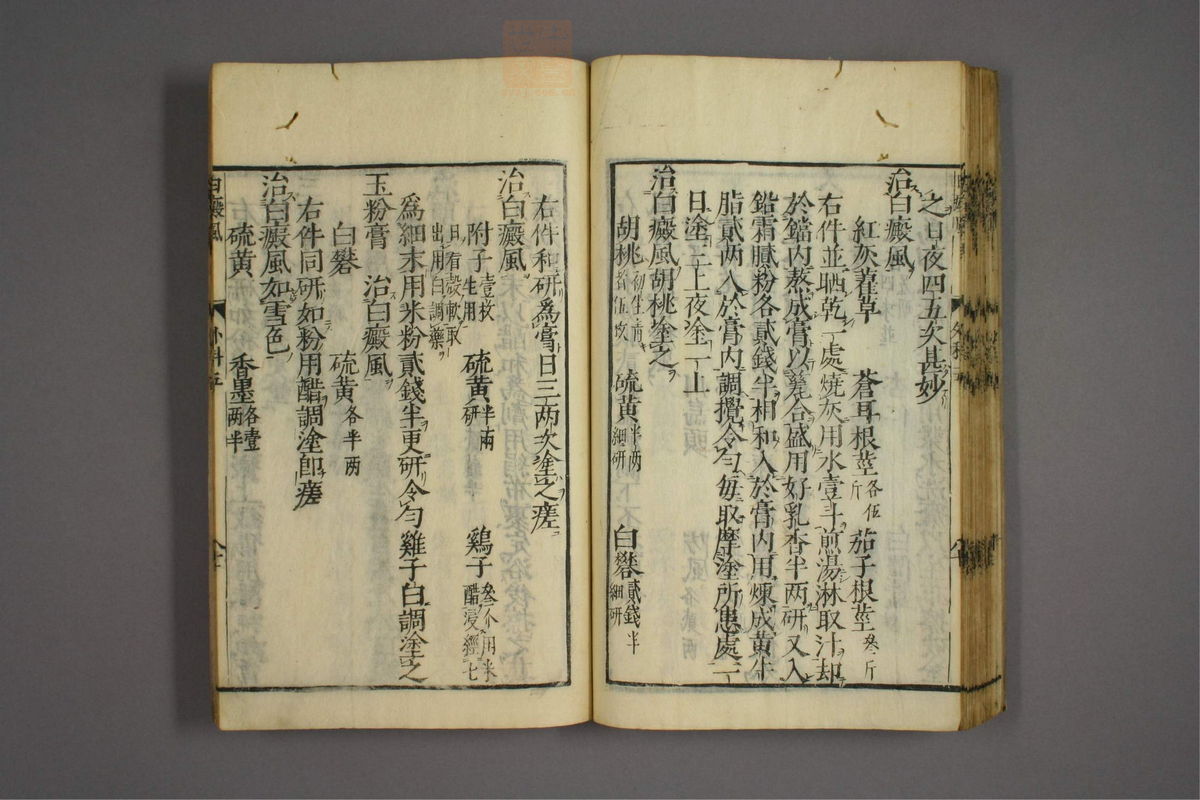 之日夜四五次甚妙
治白癜風
紅灰藋草 蒼耳根莖各伍斤 茄子根莖叁斤
右件並晒乾一處燒灰用水壹斗煎湯淋取汁却
於鐺内熬成膏以瓷合盛用好乳香半两研又入
鉛霜膩粉各貳錢半相和入於膏内用煉成黄牛
脂貳两入於膏内調攪令匀毎取摩塗所患處一
日塗三上夜塗一上
治白癜風胡桃塗之
胡桃初生青者伍枚 硫黄半两細研 白礬貳錢半細研
右件和研爲膏日三两次塗之瘥
治白癜風
附子壹枚生用 硫黄半兩研 鷄子叁个用米醋浸經七
日看殼軟取出用白調藥
爲細末用米粉貳錢半更研令匀雞子白調塗之
玉粉膏 治白癜風
白礬 硫黄各半两
右件同研如粉用醋調塗即瘥
治白癜風如雪色
硫黄 香墨各壹两半
白癜風 外科五